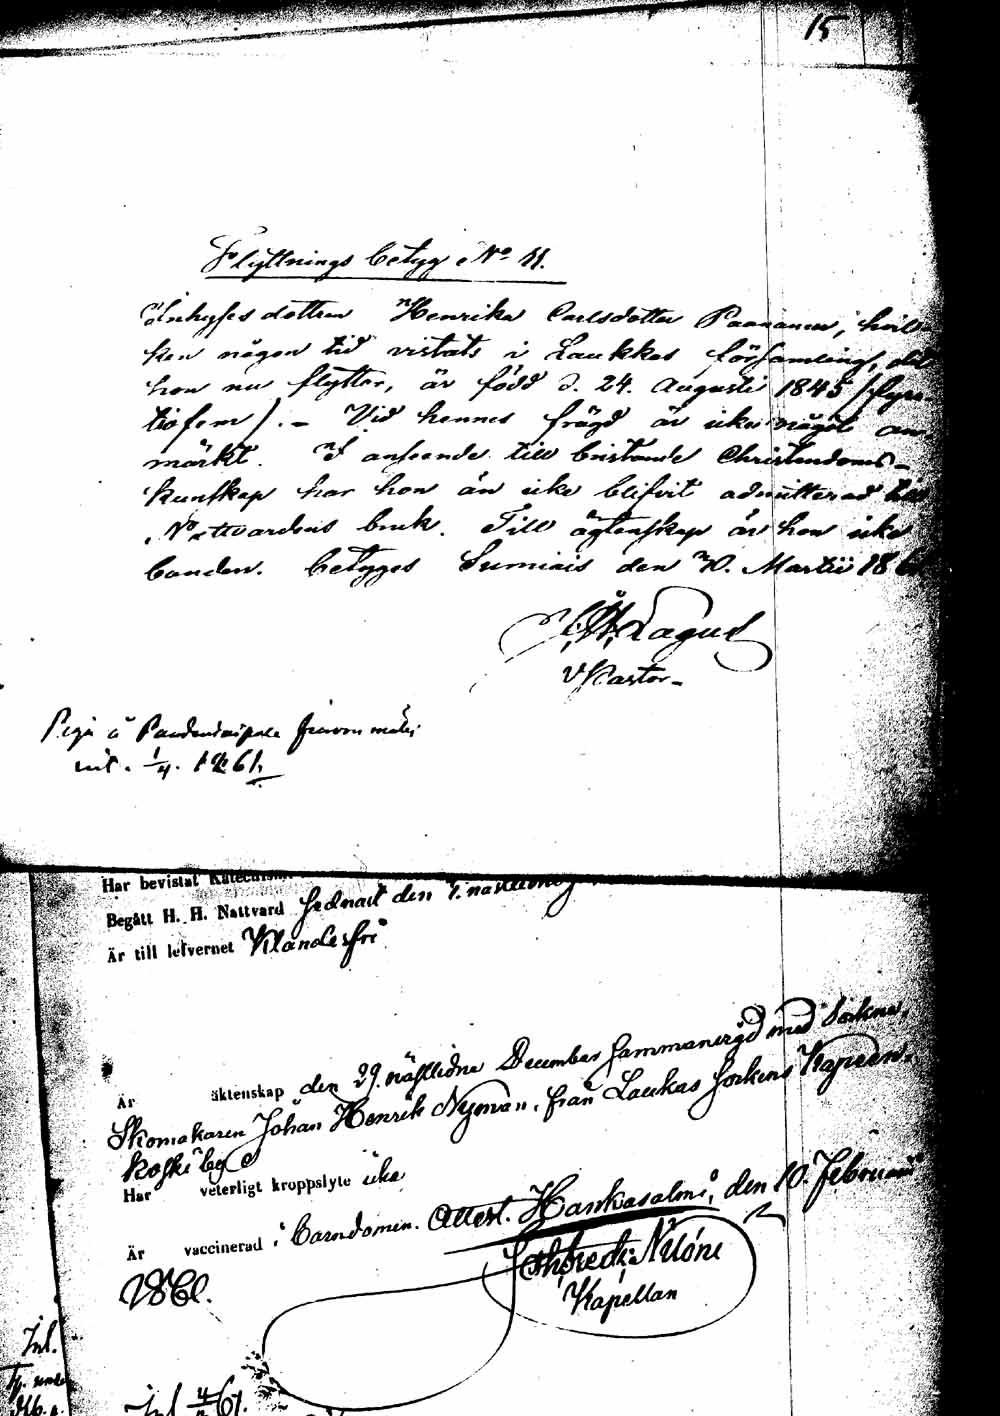 15
Flyttnings betyg No 11.
Inhyses dottren Henrika Carlsdotter Paananen, hvil-
ken någon tid vistats i Laukkas församling, dit
hon nu flytter, är född d. 24. Augusti 1845 (fyra-
tiofem). – Vid hennes frägd är icke något an-
märkt. I anseende till bristande Christendoms-
kunskap har hon än icke blifvit admitterad till
Nattvardens bruk. Till ägtenskap är hon icke
bunden. Betygges Sumiais den Martii 186
Lagus
V Pastor –
Piga å
int. 1/4. 1861.
Har bevistat
Begått H. H. Nattvard sednast den 1. nästledne
Är till lefvernet Klanderfri
Är äktenskap den 29. nästlidne December sammanvigd med Sockne
Skomakaren Johan Henrik Nyman, från Laukas Sockens Kapeen-
koski by
Har veterligt kroppslyte icke
Är vaccinerad i Barndomen. Attest. Hankasalmi, den 10. Februari
Nilóni
Kapellan
Inl.
Inl 61.